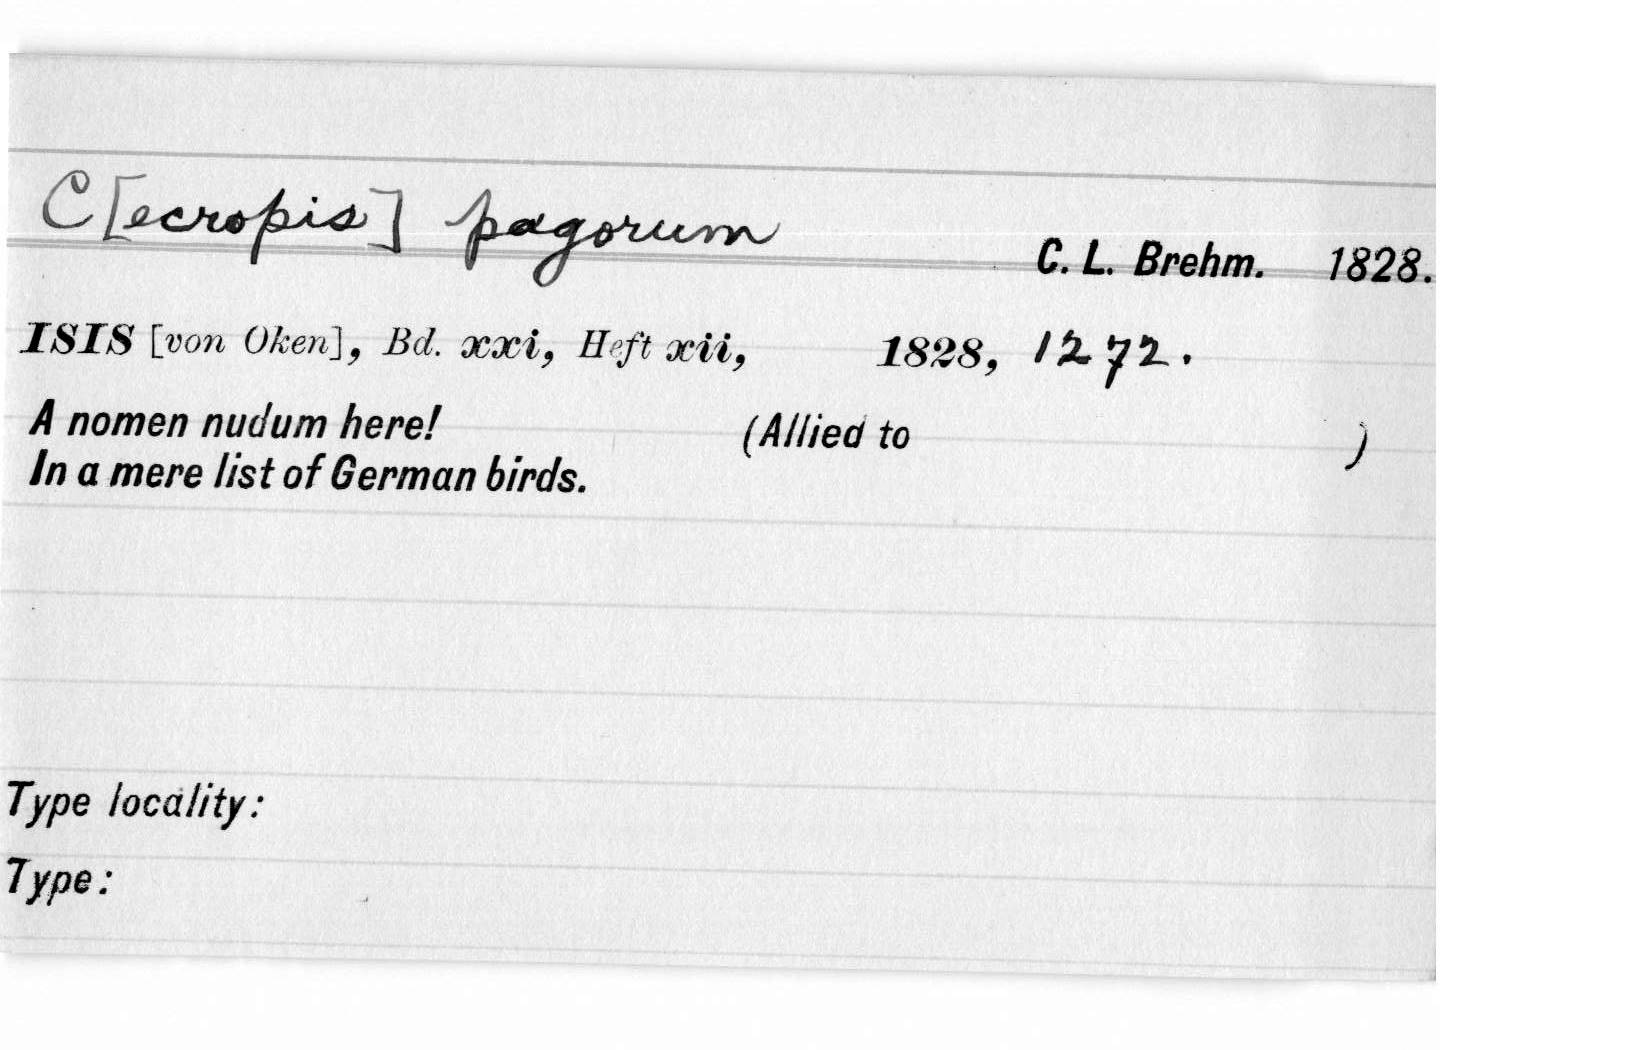 C[ecropis] pagorum
C. L. Brehm. 1828.
ISIS [von Oken], Bd. xxi, Heft xii, 1828, 1272.
A nomen nudum here! (Allied to )
In a mere list of German birds.
Type locality:
Type: